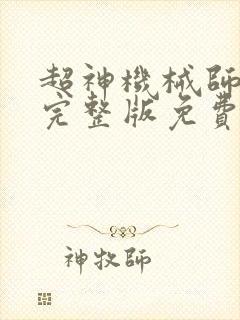 超神機械師
完整版免費
神牧師